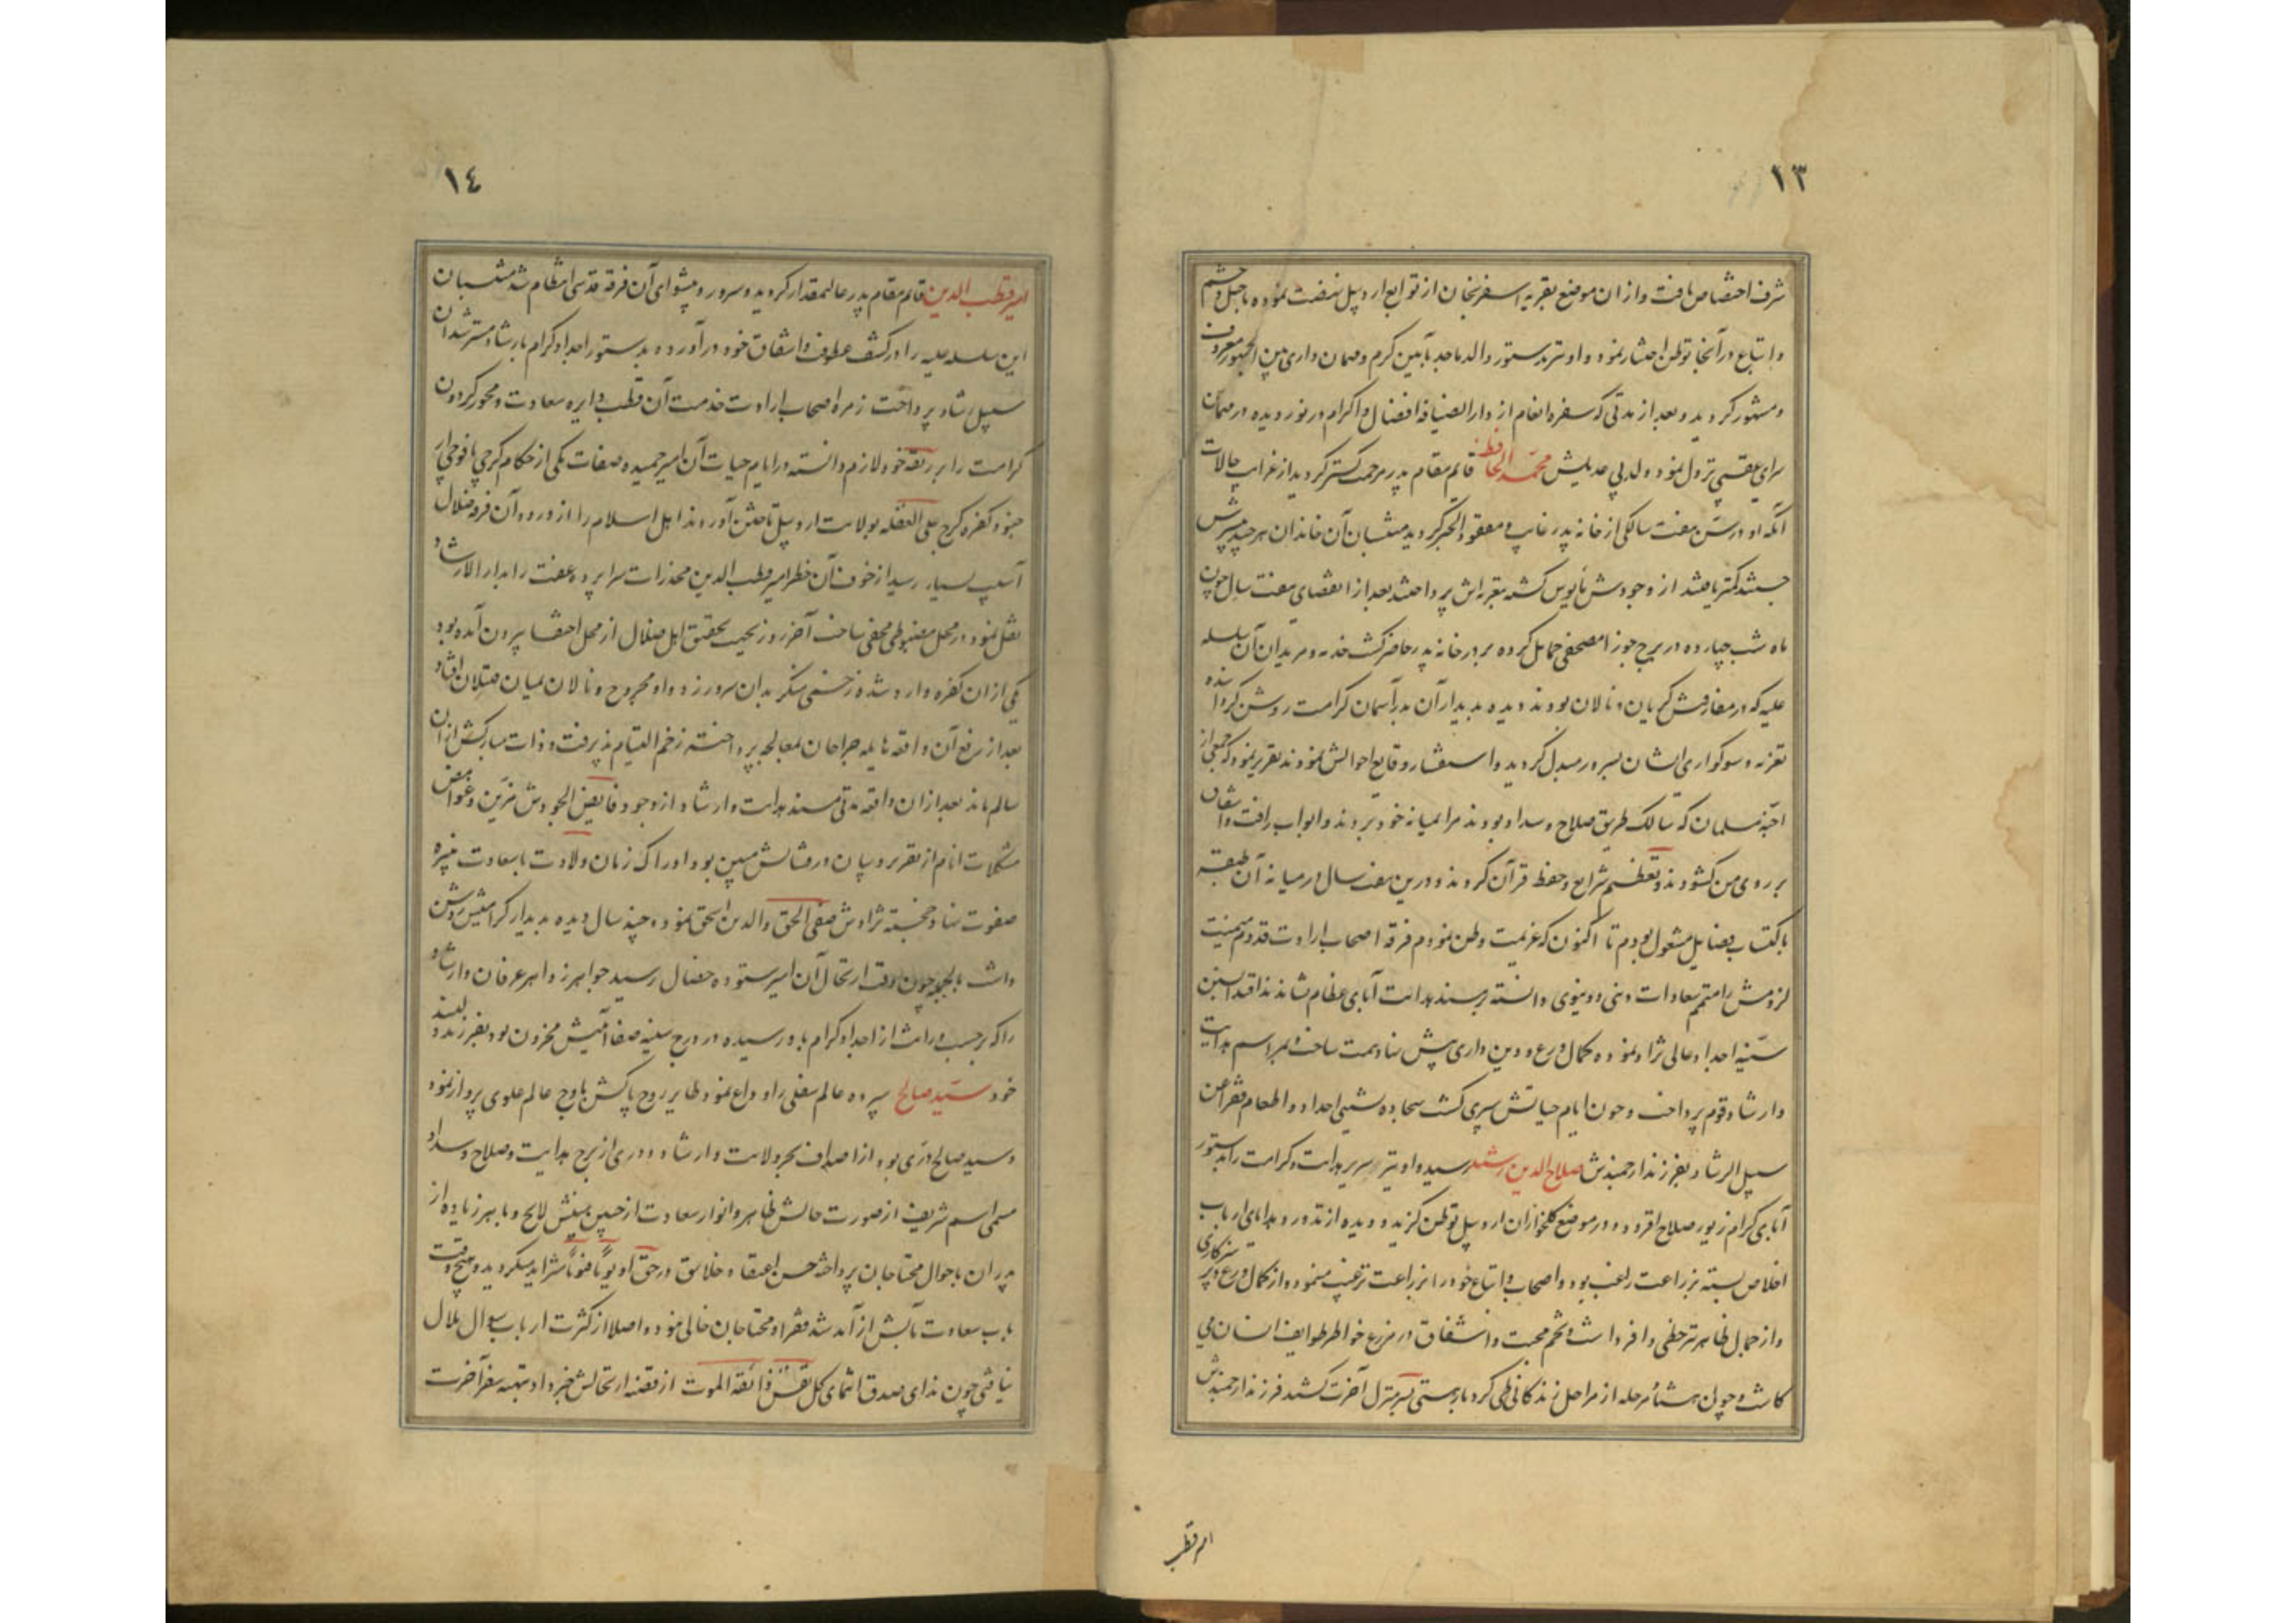 ١٣
شرف اختصاص یافت و از ان موضع بقریه اسفرنجان از توابع اردبیل نهضت نموده با خیل و حشم
و اتباع در آنجا توطن اختیار نمود و او نیز بدستور والد ماجد بآیین کرم و مهمان داری بین الجمهور معروف
و مشهور کردید و بعد از مدتی که سفره انعام از دار الضیافه افضال و اکرام در نوردیده در مهمان
سرای عقبی نزول نمود ولد بی عدیلش محمد الحافظ قائم مقام پدر مرحمت کستر کردید از غرایب حالات
آنکه او در سن هفت سالکی از خانه پدر غایب و مفقود الخبر کردید منتسبان آن خاندان هر چند بیشترش
جستند کمتر یافتند از وجودش مایوس کشته بتعزیه اش پرداختند بعد از انقضای هفت سال چون
ماه شب چهارده در برج جوزا مصحفی حمایل کرده بر در خانه پدر حاضر کشت خدمه و مریدان آن سلسله
علیه که در مفارقتش کریان و نالان بودند دیده بدیدار آن بدر آسمان کرامت روشن کردانیده
تعزیه و سوکواری ایشان بسرور مبدل کردید و استفسار وقایع احوالش نمودند تقریر نمود که جمعی از
اجنه مسلمان که سالک طریق صلاح و سداد بودند مرا بمیانه خود بردند و ابواب رافت و اشفاق
بر روی من کشودند و تعظیم شرایع و حفظ قرآن کردند و درین هفت سال در میانه آن طبقه
باکتساب فضایل مشغول بودم تا اکنون که عزیمت وطن نمودم فرقه اصحاب ارادت قدوم میمنت
لزومش را متمم سعادات دینی و دنیوی دانسته بر مسند هدایت آبای عظام نشاندند اقتدا بسنن
سنیه اجداد عالی نژاد نموده کمال ورع و دین داری پیش نهاد همت ساخت و بمراسم هدایت
و ارشاد قوم پرداخت و چون ایام حیاتش سپری کشت سجاده نشینی اجداد و اطعام فقرا من
سبیل الرشاد بفرزند ارجمندش صلاح الدین رشید رسید و او نیز سریر هدایت و کرامت را بدستور
آبای کرام زیور صلاح افزود و در موضع کلخواران اردبیل توطن کزید و دیده از نذور و هدایای ارباب
اخلاص بسته بزراعت راغب بود و اصحاب و اتباع خود را بزراعت ترغیب مینمود و از کمال ورع و پرهیزکاری
و از جمال ظاهر نیز حظی وافر داشت و تخم محبت و اشفاق در مزرع خواطر طوایف انسان می
کاشت و چون هشتاد مرحله از مراحل زندکانی طی کرد بار هستی بسر منزل آخرت کشید فرزند ارجمندش
امیر قطب
١٤
امیر قطب الدین قائم مقام پدر عالیمقدار کردید و سرور و پیشوای آن فرقه قدسی انتظام شد منتسبان
این سلسله علیه را در کنف عطوفت و اشفاق خود در آورده بدستور اجداد کرام بارشاد مسترشدان
سبیل رشاد پرداخت زمره اصحاب ارادت خدمت آن قطب دایره سعادت و محور کردون
کرامت را بر ربقه خود لازم دانسته در ایام حیات آن امیر حمیده صفات یکی از حکام کرجی با فوجی از
جنود کفره کرج علی الغفله بولایت اردبیل تاختن آوردند اهل اسلام را از ورود آن فرقه ضلال
آسیب بسیار رسید از خوف آن خطر امیر قطب الدین مخدرات سراپرده عفت را بدار الارشاد
نقل نمود در محل مضبوطی مخفی ساخت آخر روز بجهت تحقیق اهل ضلال از محل اختفا بیرون آمده بود
یکی از ان کفره وارد شده زخمی منکر بدان سرور زد و او مجروح و نالان میان قتیلان افتاد
بعد از رفع آن واقعه هایله جراحان بمعالجه پرداخته زخم التیام پذیرفت و ذات مبارکش از ان
سالم ماند بعد از ان واقعه مدتی مسند هدایت و ارشاد از وجود فایض الجودش مزین و غوامض
مشکلات انام از تقریر و بیان درفشانش مبین بود ادراک زمان ولادت با سعادت نبیره
صفوت نهاد خجسته نژادش صفی الحق والدین اسحق نموده چند سال دیده بدیدار کرامیش روشن
داشت بالجمله چون وقت ارتحال آن امیر ستوده خصال رسید جواهر زواهر عرفان و ارشاد
را که بر حسب وراثت از اجداد کرام باو رسیده در درج سینه صفا آئینش مخزون بود بفرزند دلبند
خود سید صالح سپرده عالم سفلی را وداع نمود طایر روح پاکش باوج عالم علوی پرواز نمود
و سید صالح دری بود از اصداف بحر ولایت و ارشاد و دری از برج هدایت و صلاح و سداد
مسمی اسم شریف از صورت حالش ظاهر و انوار سعادت از جبین مبینش لایح و باهر زیاده از
پدران باحوال محتاجان پرداخته حسن اعتقاد خلایق در حق او یوما فیوما متزاید میکردید و هیچ وقت
باب سعادت مآبش از آمد شد فقرا و محتاجان خالی نبود و اصلا از کثرت ارباب سوال ملال
نیافتی چون ندای صدق انتمای کل نفس ذائقة الموت از قضیه ارتحالش خبر داد تهیه سفر آخرت